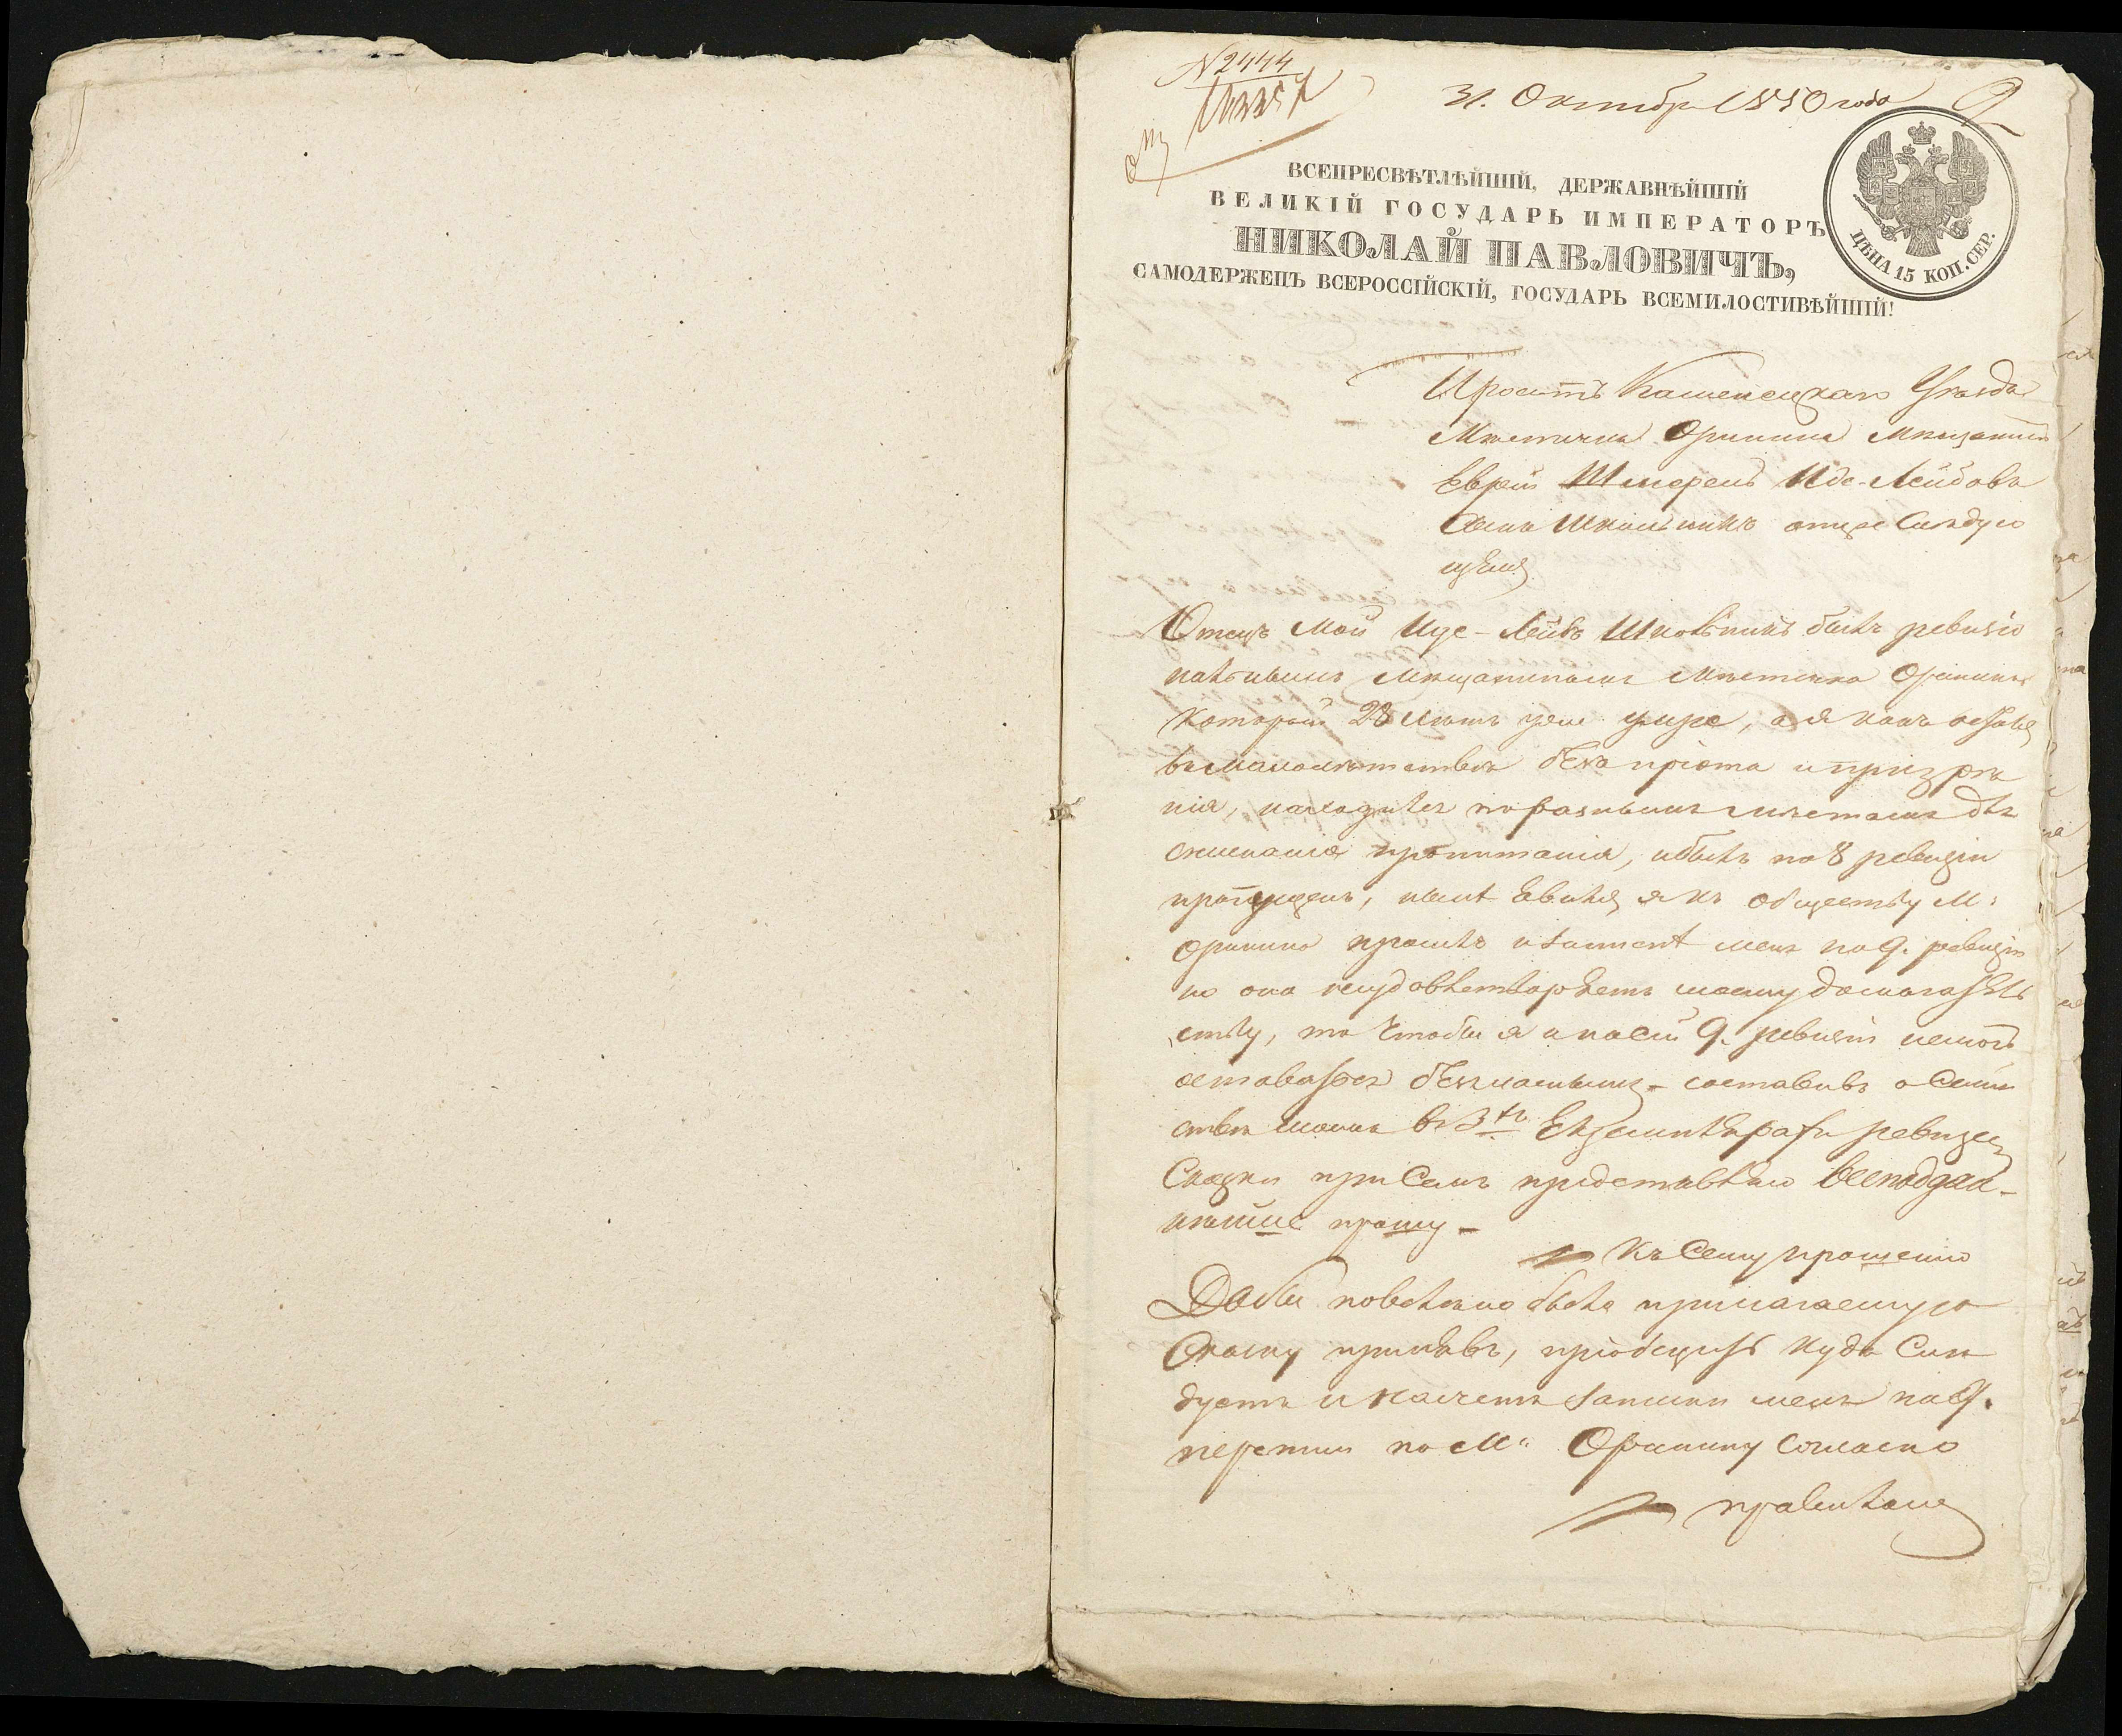 N 2444
31. Октября 1850 года
2
ВСЕПРЕСВѢТЛѢЙШІЙ, ДЕРЖАВНѢЙШІЙ
ВЕЛИКІЙ ГОСУДАРЬ ИМПЕРАТОРЪ
НИКОЛАЙ ПАВЛОВИЧЪ,
САМОДЕРЖЕЦЪ ВСЕРОССІЙСКІЙ, ГОСУДАРЬ ВСЕМИЛОСТИВѢЙШІЙ!
ЦѢНА 15 КОП. СЕР.
Проситъ Каменецкаго Уѣзда
Мѣстечка Оринина мѣщанинъ
Еврей Шмерель Иде-Лейбовъ
Сынъ Школьникъ о слѣдую
щемъ
Отецъ мой Иде-Лейбъ Школьникъ былъ ревизіо
нальнымъ мѣщаниномъ мѣстечка Оринина
который 28 лѣтъ уже умре, а я какъ осталъ
въ малолѣтствѣ безъ пріюта и призрѣ
нія, находился по разнымъ мѣстамъ для
снисканія пропитанія, и былъ по 8 ревизіи
пропущенъ, нынѣ явился я къ обществу м.
Оринина просилъ записать меня по 9. ревизіи
но оно неудовлетворяетъ моему домогатель
ству, то чтобы я и по сей 9. ревизіи немогъ
оставаться безгласнымъ - составивъ о семей
ствѣ моемъ въ 3хъ Екземплярахъ ревизск
Сказки при семъ представляю всеподдан-
нѣйше прошу -
Къ сему прошенію
Дабы повелѣно было прилагаемую
Сказку принявъ, пріобщить куда слѣ
дуетъ и насчетъ записки меня по 9.
переписи по м. Оринину согласно
правиламъ